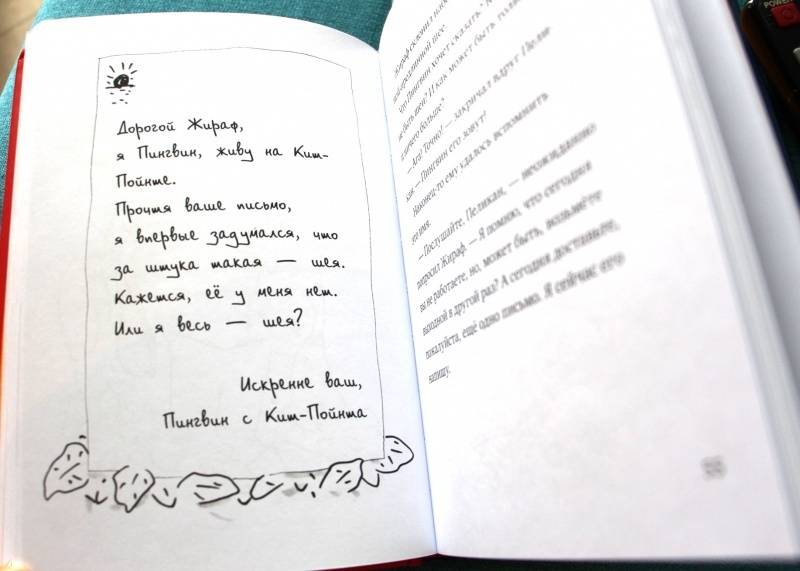 Дорогой Жираф,
я Пингвин, живу на Кит-
Пойнте.
Прочтя ваше письмо,
я впервые задумался, что
за штука такая — шея.
Кажется, её у меня нет.
Или я весь — шея?
Искренне ваш,
Пингвин с Кит-Пойнта
Жираф склонил
длинной шее.
что Пингвин хочет сказать
быть шеи? И как может быть
ничего больше?
— Ага! Точно! — закричал вдруг
как — Пингвин его зовут?
Наконец-то ему удалось вспомнить
это имя.
— Послушайте, Пеликан, — неожиданно
попросил Жираф. — Я помню, что сегодня
вы не работаете, но, может быть, возьмёте
выходной в другой раз? А сегодня доставьте,
пожалуйста, ещё одно письмо. Я сейчас его
напишу.
POWER